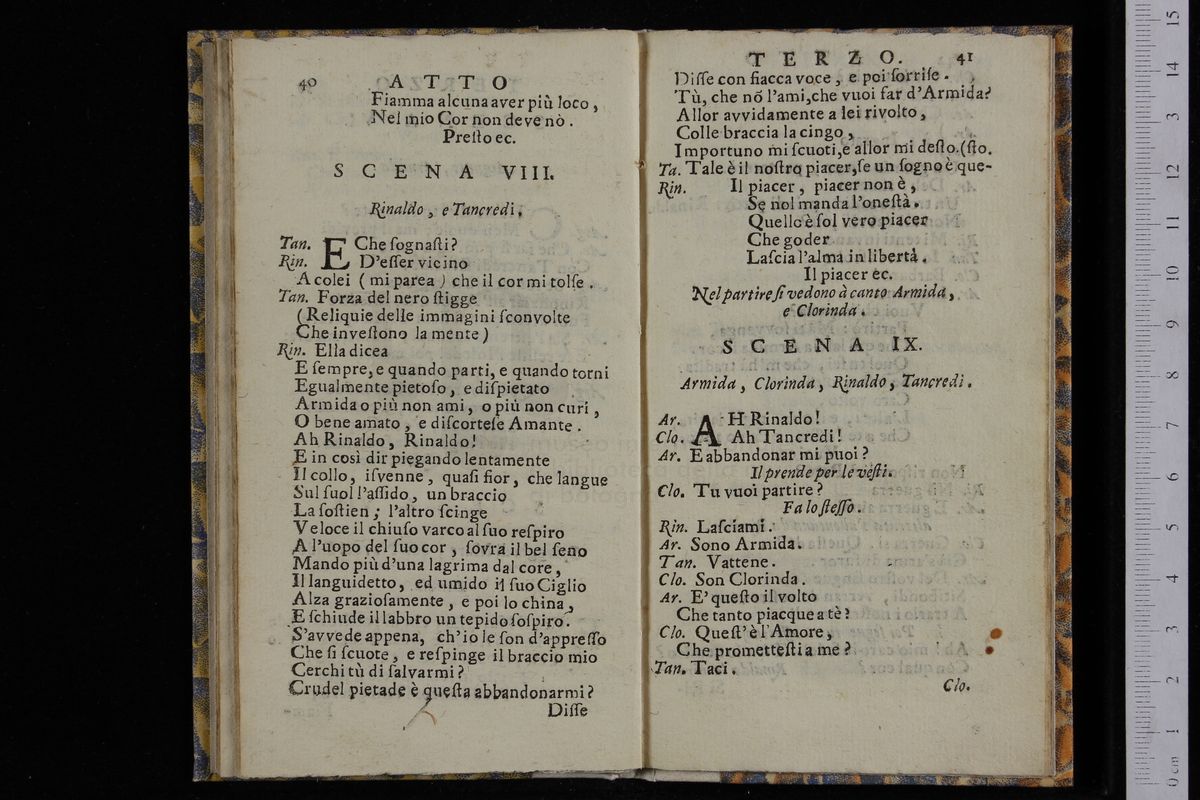 40 ATTO
Fiamma alcuna aver più loco,
Nel mio Cor non deve nò.
Preſto ec.
SCENA VIII.
Rinaldo, e Tancredi.
Tan. E Che ſognaſti?
Rin. D'eſſer vicino
A colei (mi parea) che il cor mi tolſe.
Tan. Forza del nero ſtigge
(Reliquie delle immagini ſconvolte
Che inveſtono la mente)
Rin. Ella dicea
E ſempre, e quando parti, e quando torni
Egualmente pietoſo, e diſpietato
Armida o più non ami, o più non curi,
O bene amato, e diſcorteſe Amante.
Ah Rinaldo, Rinaldo!
E in così dir piegando lentamente
Il collo, iſvenne, quaſi fior, che langue
Sul ſuol l'aſſido, un braccio
La ſoſtien; l'altro ſcinge
Veloce il chiuſo varco al ſuo reſpiro
A l'uopo del ſuo cor, ſovra il bel ſeno
Mando più d'una lagrima dal core,
Il languidetto, ed umido il ſuo Ciglio
Alza grazioſamente, e poi lo china,
E ſchiude il labbro un tepido ſoſpiro.
S'avvede appena, ch'io le ſon d'appreſſo
Che ſi ſcuote, e reſpinge il braccio mio
Cerchi tù di ſalvarmi?
Crudel pietade è queſta abbandonarmi?
Diſſe
TERZO. 41
Diſſe con fiacca voce, e poi ſorriſe.
Tù, che nõ l'ami, che vuoi far d'Armida?
Allor avvidamente a lei rivolto,
Colle braccia la cingo,
Importuno mi ſcuoti, e allor mi deſto. (ſto.
Ta. Tale è il noſtro piacer, ſe un ſogno è que-
Rin. Il piacer, piacer non è,
Se nol manda l'oneſtà.
Quello è ſol vero piacer
Che goder
Laſcia l'alma in libertà.
Il piacer ec.
Nel partire ſi vedono à canto Armida,
e Clorinda.
SCENA IX.
Armida, Clorinda, Rinaldo, Tancredi.
Ar. AH Rinaldo!
Clo. Ah Tancredi!
Ar. E abbandonar mi puoi?
Il prende per le veſti.
Clo. Tu vuoi partire?
Fa lo ſteſſo.
Rin. Laſciami.
Ar. Sono Armida.
Tan. Vattene.
Clo. Son Clorinda.
Ar. E' queſto il volto
Che tanto piacque a tè?
Clo. Queſt' è l'Amore,
Che prometteſti a me?
Tan. Taci.
Clo.